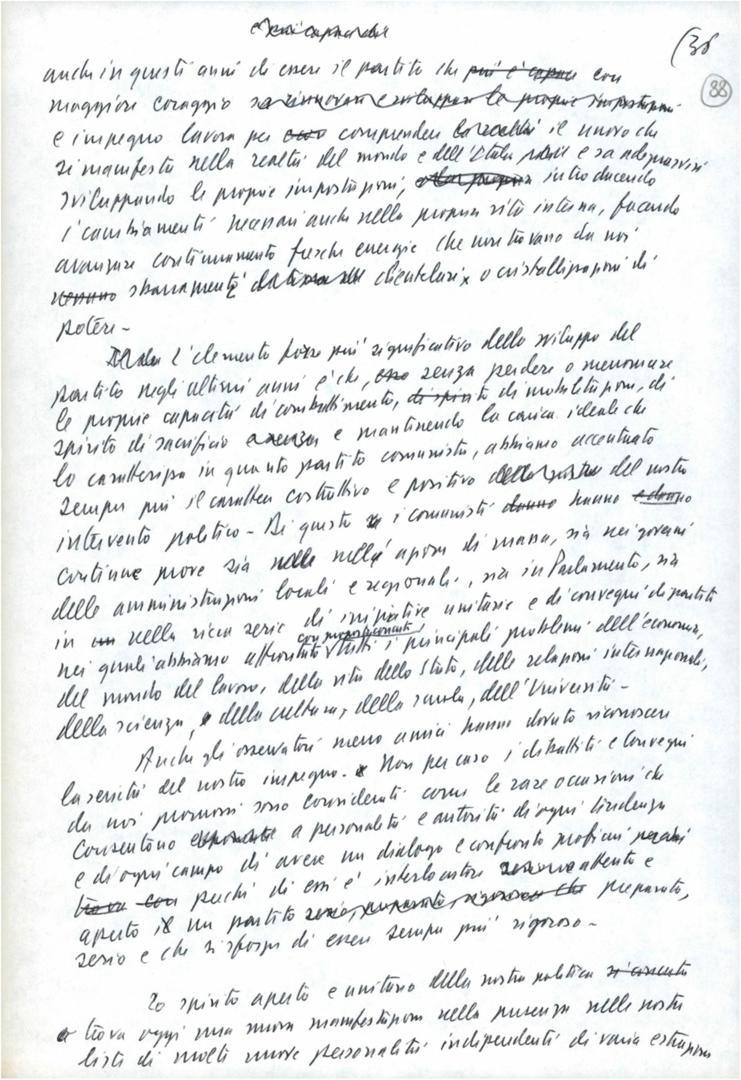 (38
88
anche in questi anni di essere il partito che più è capace con
maggiore coraggio sa rinnovare e sviluppare le proprie impostazioni
e impegno lavora per comprendere la realtà il nuovo che
si manifesta nella realtà del mondo e dell'Italia e sa adeguarvisi
sviluppando le proprie impostazioni, introducendo
i cambiamenti necessari anche nella propria vita interna, facendo
avanzare continuamente fresche energie che non trovano da noi
nessuno sbarramenti clientelari o cristallizzazioni di
potere -
L'elemento forse più significativo dello sviluppo del
partito negli ultimi anni è che, senza perdere o menomare
le proprie capacità di combattimento, di spirito di mobilitazione, di
spirito di sacrificio e senza e mantenendo la carica ideale che
lo caratterizza in quanto partito comunista, abbiamo accentuato
sempre più il carattere costruttivo e positivo della nostra del nostro
intervento politico - Di questo i comunisti danno hanno e danno
continue prove sia nelle nelle azioni di massa, sia nei governi
delle amministrazioni locali e regionali, sia in Parlamento, sia
in un nella ricca serie di iniziative unitarie e di convegni di partito
nei quali abbiamo affrontato tutti i principali problemi dell'economia,
del mondo del lavoro, della vita dello Stato, delle relazioni internazionali,
della scienza, e della cultura, della scuola, dell'Università -
Anche gli osservatori meno amici hanno dovuto riconoscere
la serietà del nostro impegno. Non per caso i dibattiti e convegni
da noi promossi sono considerati come le rare occasioni che
consentono a personalità e autorità di ogni tendenza
e di ogni campo di avere un dialogo e confronto proficui perché
trova con perché di essi è interlocutore attento e
aperto è un partito serio, preparato, rigoroso che preparato,
serio e che si sforza di essere sempre più rigoroso -
Lo spirito aperto e unitario della nostra politica
e trova oggi una nuova manifestazione nella presenza nelle nostre
liste di molte nuove personalità indipendenti di varia estrazione